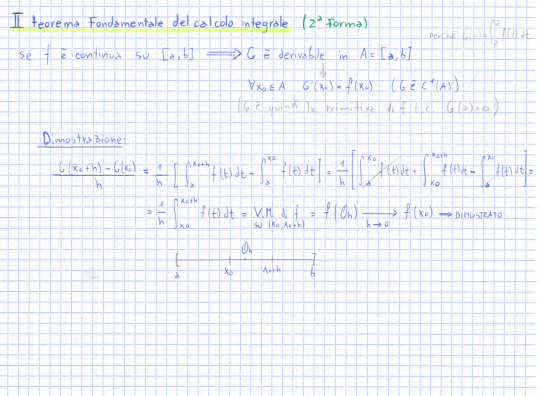 II teorema fondamentale del calcolo integrale (2ª forma)
perché G(a) = ∫_a^a f(t)dt
se f è continua su [a,b] ⟹ G è derivabile in A = [a,b]
↓
∀x₀∈A G'(x₀) = f(x₀) (G è C¹(A))
(G è quindi la primitiva di f t.c. G(a)=0)
Dimostrazione:
(G(x₀+h) - G(x₀))/h = 1/h [∫_a^{x₀+h} f(t)dt - ∫_a^{x₀} f(t)dt] = 1/h [∫_a^{x₀} f(t)dt + ∫_{x₀}^{x₀+h} f(t)dt - ∫_a^{x₀} f(t)dt] =
= 1/h ∫_{x₀}^{x₀+h} f(t)dt = V.M. di f su (x₀,x₀+h) = f(θh) ⟶ h→0 f(x₀) ⟹ DIMOSTRATO
θh
a x₀ x₀+h b